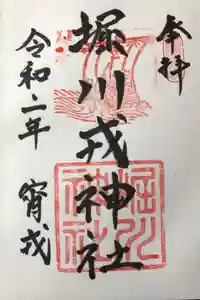 奉拝
堀川戎神社
令和二年 宵戎
堀川戎神社